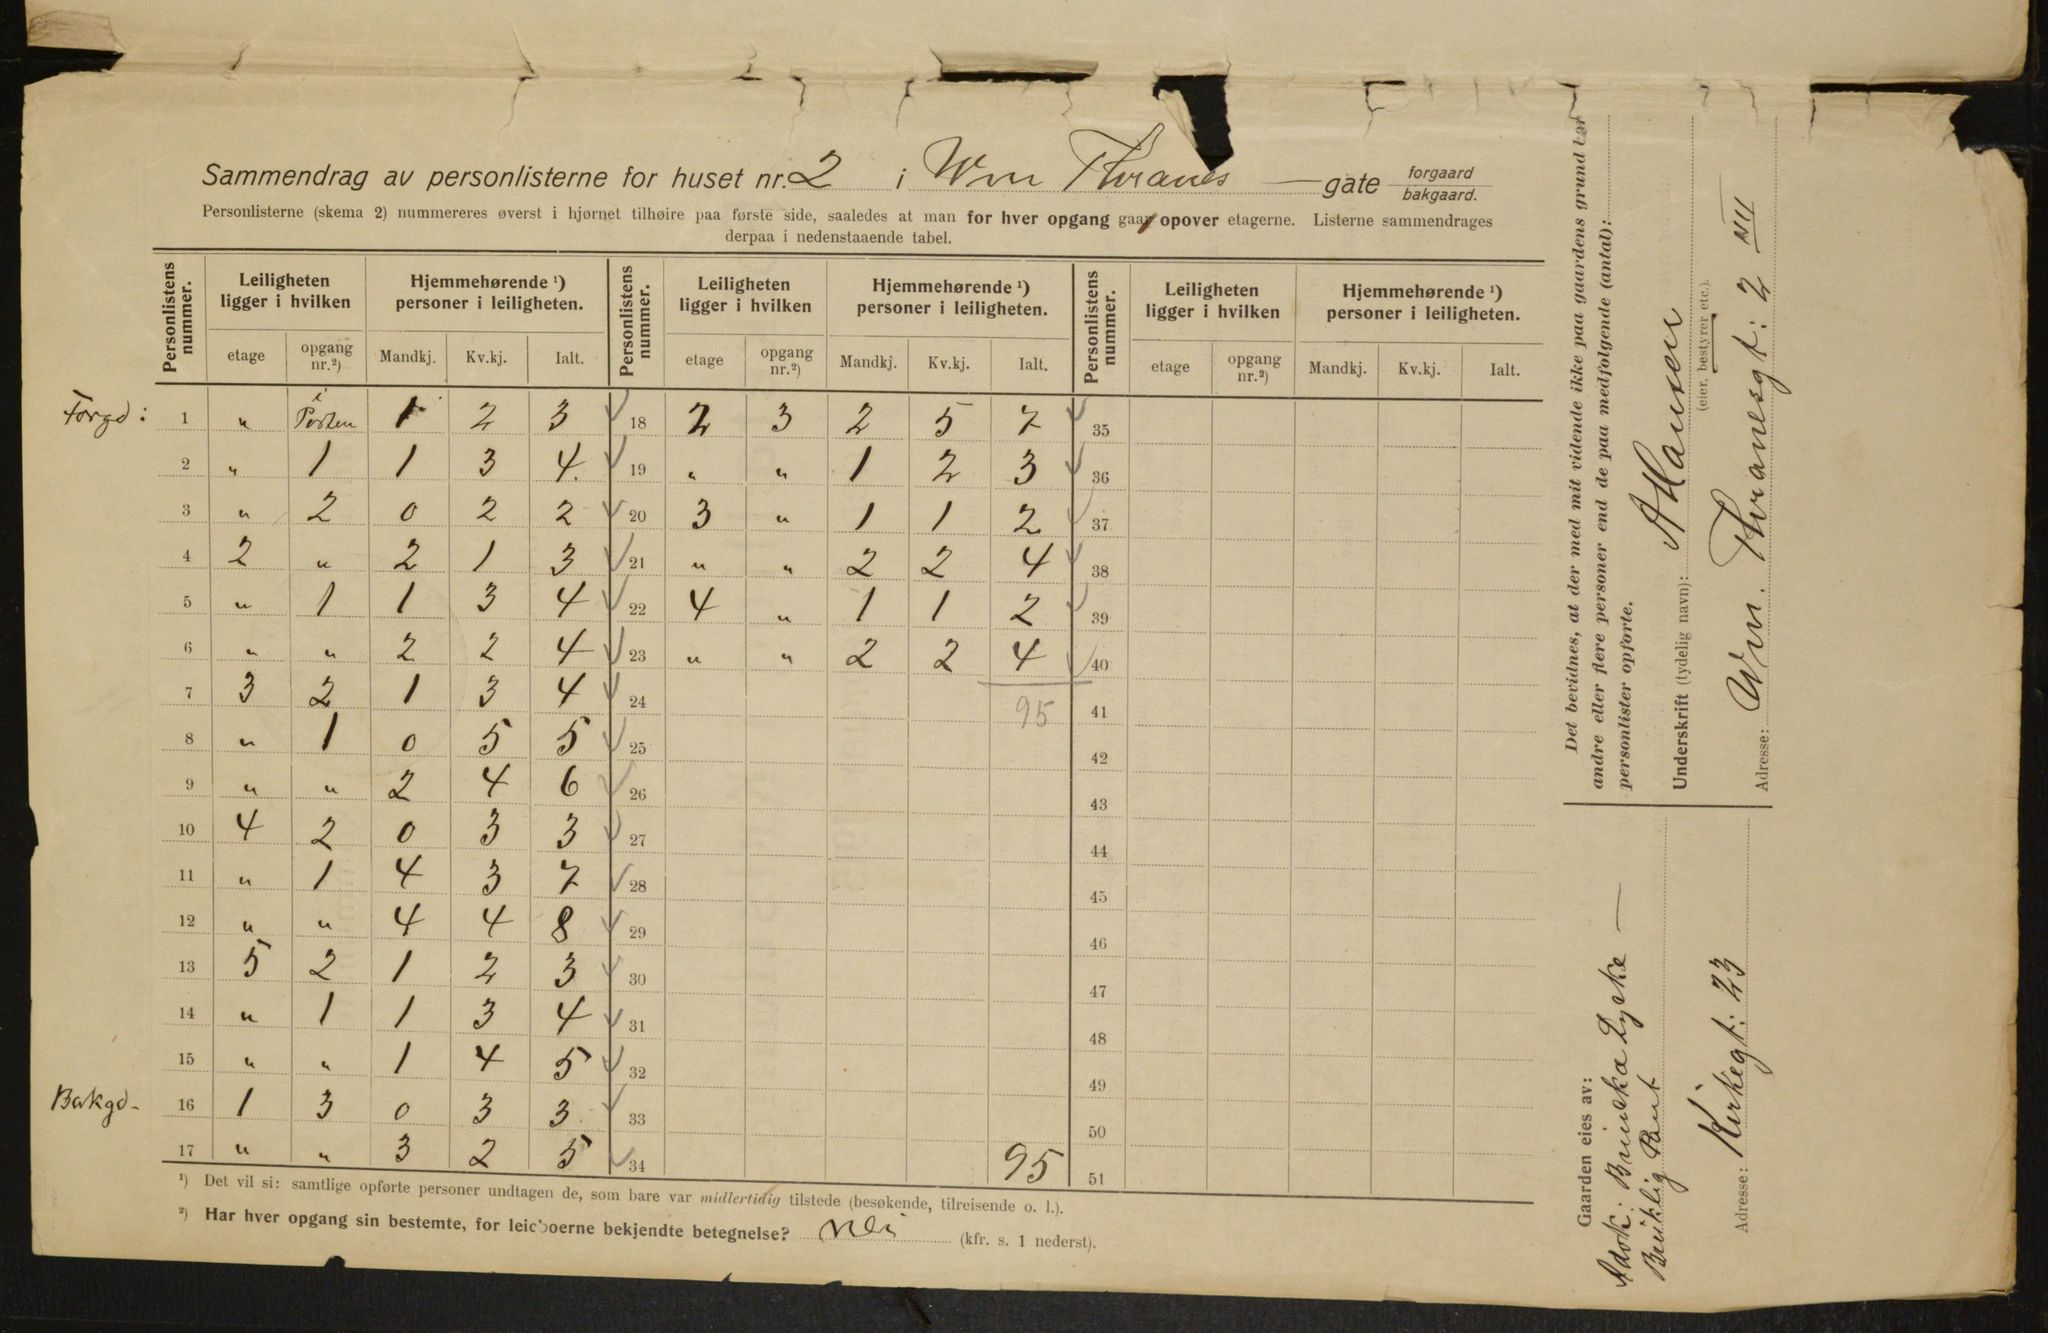 Sammendrag av personlisterne for huset nr. 2 i Wm Thranes — gate forgaard bakgaard.
Personlisterne (skema 2) nummereres øverst i hjørnet tilhøire paa første side, saaledes at man for hver opgang gaar opover etagerne. Listerne sammendrages
derpaa i nedenstaaende tabel.
Personlistens nummer. Leiligheten ligger i hvilken Hjemmehørende ¹) personer i leiligheten. Personlistens nummer. Leiligheten ligger i hvilken Hjemmehørende ¹) personer i leiligheten. Personlistens nummer. Leiligheten ligger i hvilken Hjemmehørende ¹) personer i leiligheten.
etage opgang nr.²) Mandkj. Kv.kj. Ialt. etage opgang nr.²) Mandkj. Kv.kj. Ialt. etage opgang nr.²) Mandkj. Kv.kj. Ialt.
Forgd: 1 " Porten 1 2 3 18 2 3 2 5 7 35
2 " 1 1 3 4. 19 " " 1 2 3 36
3 " 2 0 2 2 20 3 " 1 1 2 37
4 2 " 2 1 3 21 " " 2 2 4 38
5 " 1 1 3 4 22 4 " 1 1 2 39
6 " " 2 2 4 23 " " 2 2 4 40
7 3 2 1 3 4 24 95 41
8 " 1 0 5 5 25 42
9 " " 2 4 6 26 43
10 4 2 0 3 3 27 44
11 " 1 4 3 7 28 45
12 " " 4 4 8 29 46
13 5 2 1 2 3 30 47
14 " 1 1 3 4 31 48
15 " " 1 4 5 32 49
Bakgd- 16 1 3 0 3 3 33 50
17 " " 3 2 5 34 95 51
¹) Det vil si: samtlige opførte personer undtagen de, som bare var midlertidig tilstede (besøkende, tilreisende o. l.).
²) Har hver opgang sin bestemte, for leieboerne bekjendte betegnelse? Nei (kfr. s. 1 nederst).
Det bevidnes, at der med mit vidende ikke paa gaardens grund bor
andre eller flere personer end de paa medfølgende (antal):
personlister opførte.
Underskrift (tydelig navn): A Hansen
(eier, bestyrer etc.).
Adresse: Wm. Thranesgt: 2 VII
Gaarden eies av:
Advok: Lyske —
Adresse: Kirkegt: 23